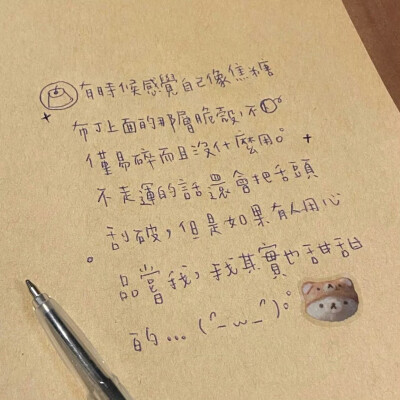 有時候感覺自己像焦糖
布丁上面的那層脆殼,不
僅易碎而且沒什麼用。
不走運的話還會把舌頭
刮破,但是如果有人用心
品嘗我,我其實也甜甜
的...(^_ω_^)。